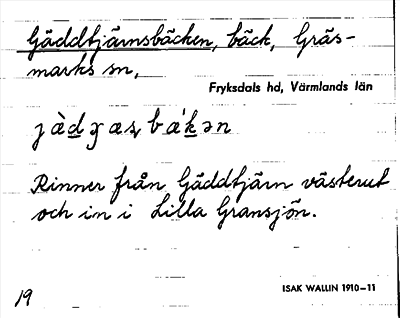 Gäddtjärnsbäcken, bäck, Gräs-
marks sn,
Fryksdals hd, Värmlands län
Rinner från Gäddtjärn västerut
och in i Lilla Gransjön.
ISAK WALLIN 1910–11
19